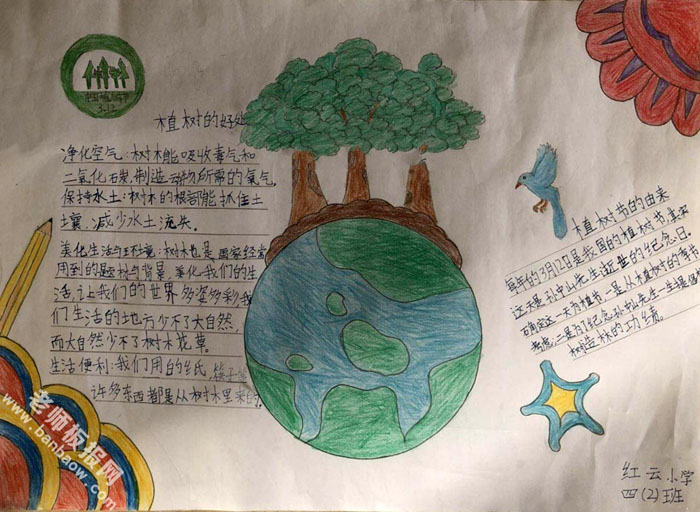 3.12
植树的好处
净化空气:树木能吸收毒气和
二氧化石炭,制造动物所需的氧气,
保持水土:树木的根部能抓住土
壤,减少水土流失。
美化生活与环境:树木也是国家经常
用到的题材与背景,美化我们的生
活,让我们的世界多姿多彩,我
们生活的地方少不了大自然,
而大自然少不了树木花草。
生活便利:我们用的纸,筷子等
许多东西都是从树木里来的。
植树节的由来
每年的3月12日是我国的植树节,
这天是孙中山先生逝世的纪念日。
确定这一天为植树节,一是从植树的季节
考虑,二是为了纪念孙中山先生一生提倡
树造林的功绩。
红云小学
四(2)班
老师板报网
www.banbaow.com